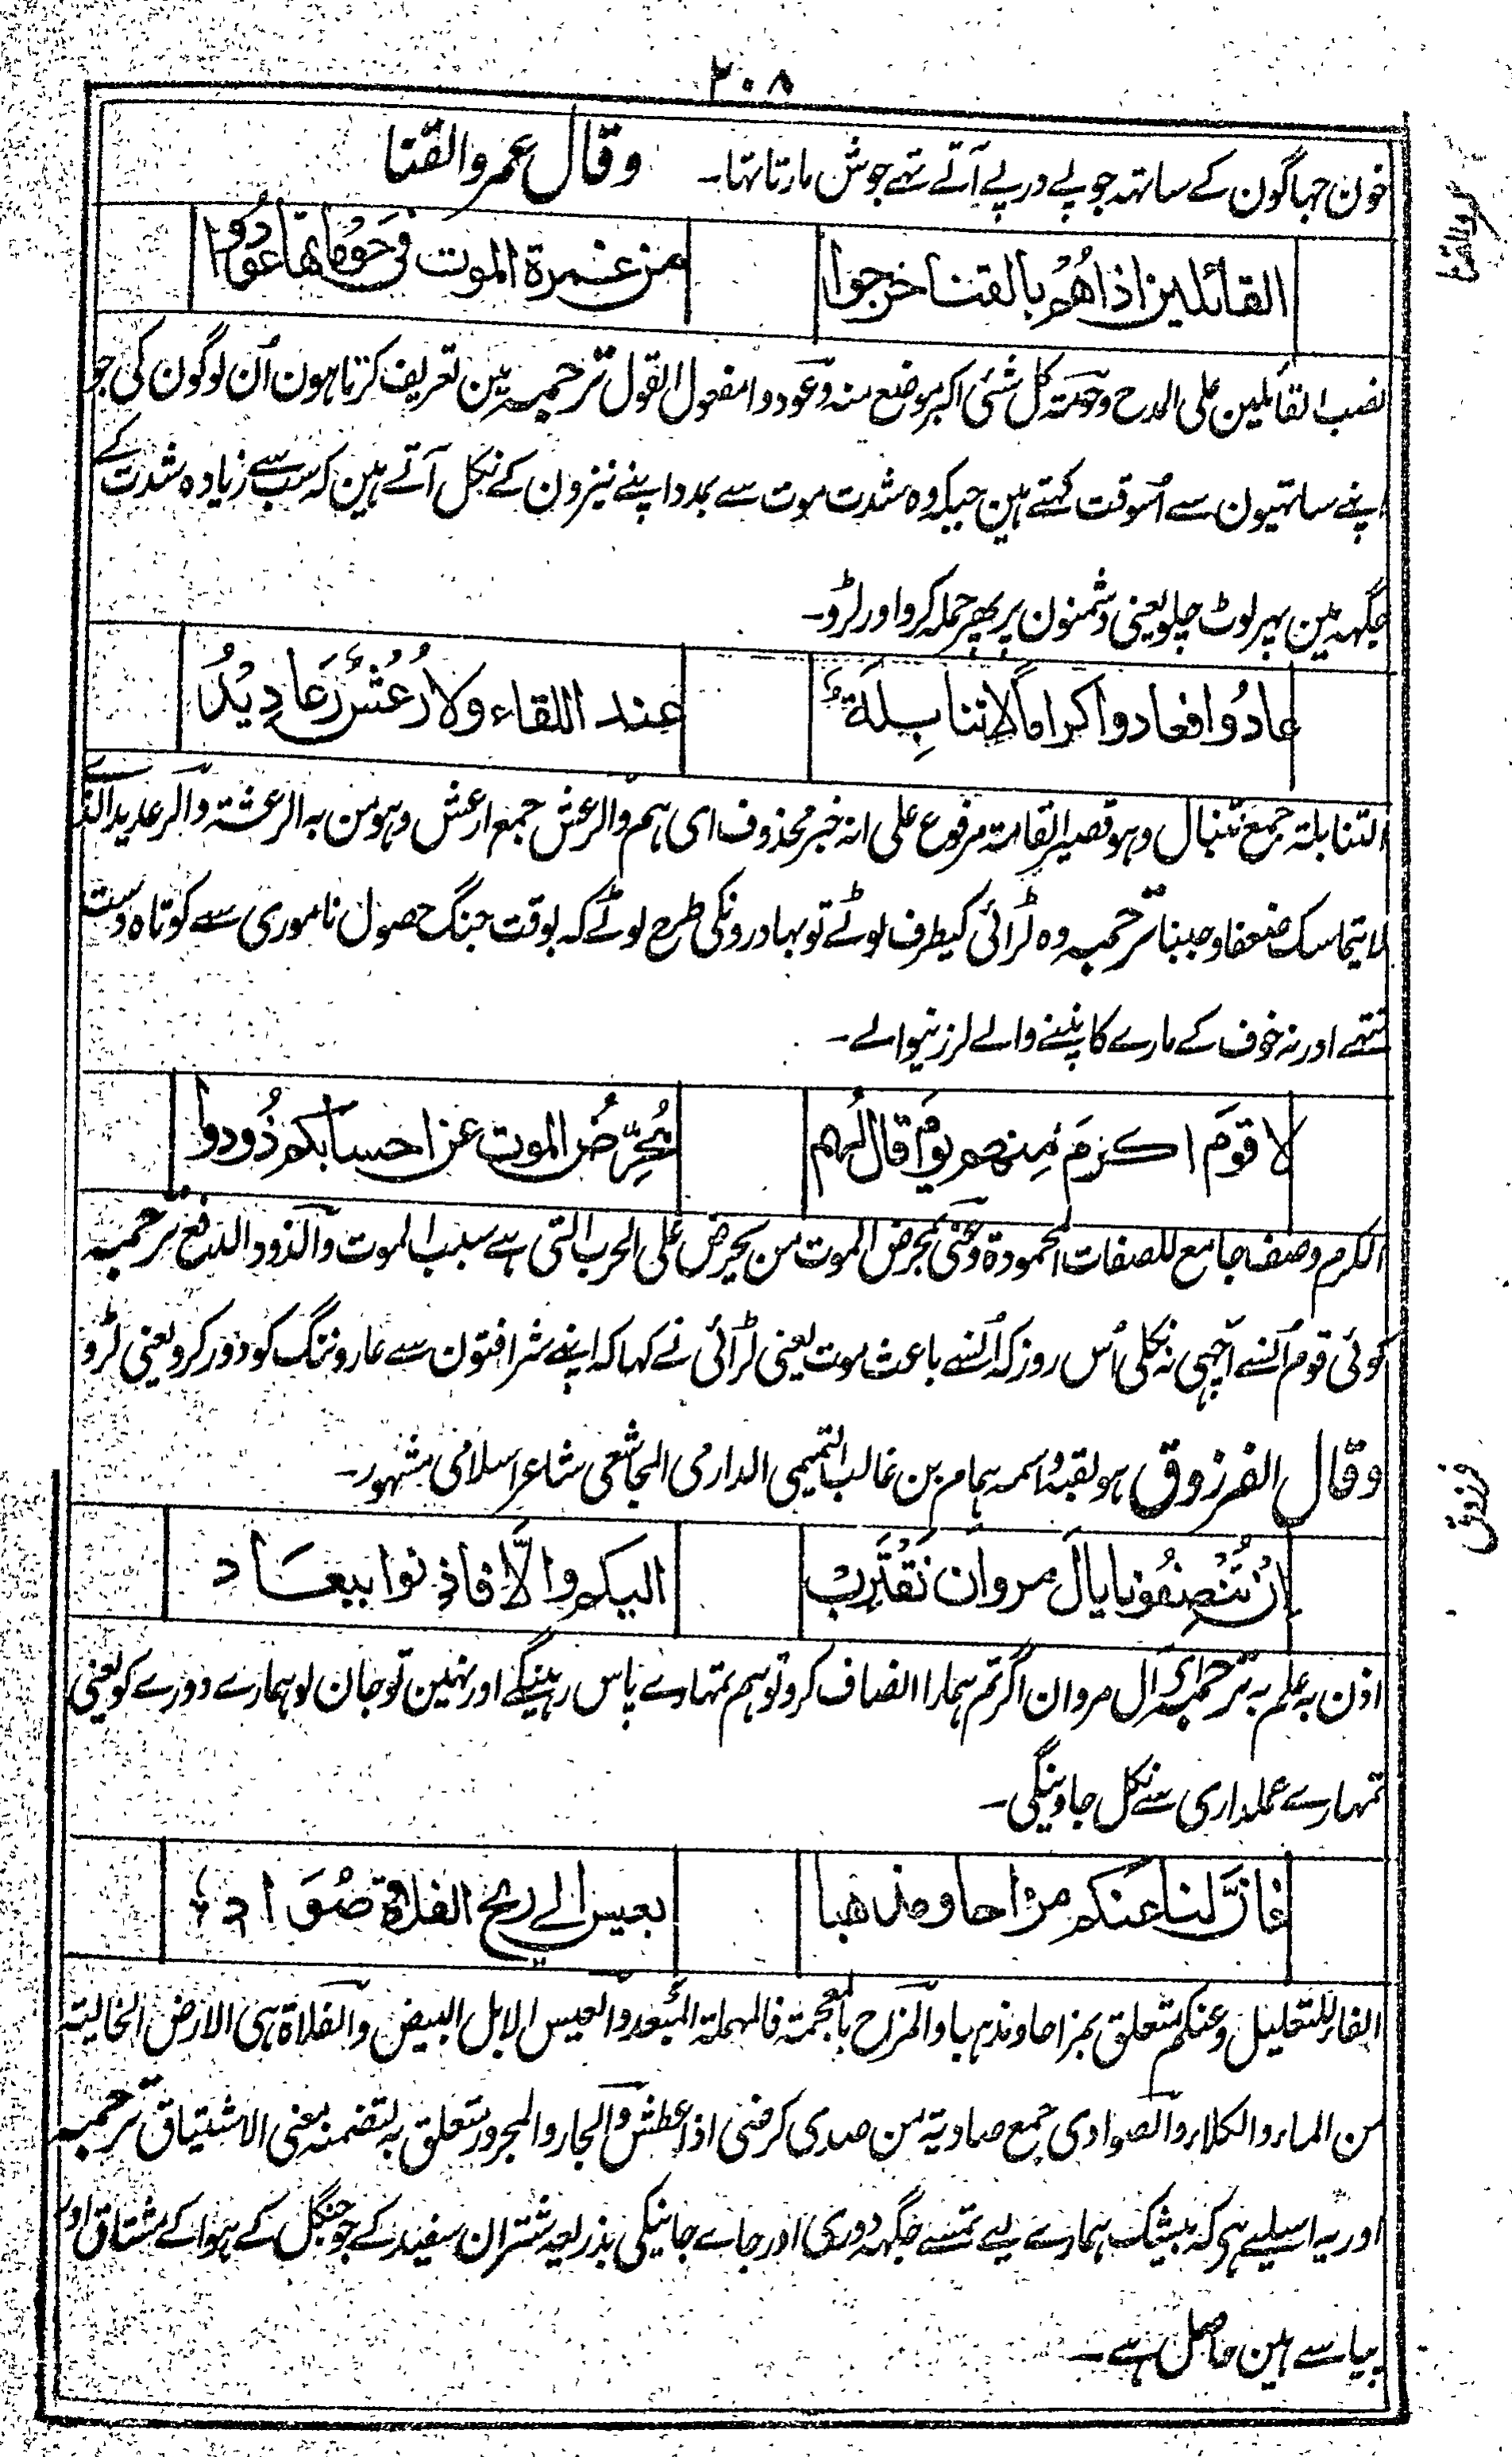 ٢٠٨
خون جہاگون کے ساتہہ جو پے در پے آتے تہے جوش مارتا تہا۔ وقال عمرو القنا
عمرو القنا
القائلین اذا هُم بالقنا خرجوا من غمرة الموت فی حَوماتها عُودُوا
نصب القائلین علی المدح وحومتہ کل شئی اکبر موضع منہ وعودوا مفعول القول ترجمہ مین تعریف کرتا ہون اُن لوگون کی جو
اپنے ساتہیون سے اُسوقت کہتے ہین جبکہ وہ شدت موت سے بمدد اپنے نیزون کے نکل آتے ہین کہ سب سے زیادہ شدت کے
جگہہ مین پہر لوٹ چلو یعنی دشمنون پر پھر حملہ کرو اور لڑو۔
عادُوا فعادوا کراما لا تنابِلَةٌ عند اللقاء ولا رُعُشٌ رَعادِیدُ
التنابلة جمع تنبال وہو قصیر القامة مرفوع علی انہ خبر محذوف ای ہم والرعش جمع ارعش وہو من بہ الرعشة والرعدید الذی
لا یتماسک ضعفا وجبنا ترجمہ وہ لڑائی کیطرف لوٹے تو بہادرونکی طرح لوٹے کہ بوقت جنگ حصول ناموری سے کوتاہ دست
نتہے اور نہ خوف کے مارے کانپنے والے لرزنیوالے۔
لا قومَ اکرَمَ مِنهم یومَ قال لَهم مُحَرِّضُ الموت عن احسابکم ذُودوا
الکرم وصف جامع للصفات المحمودة وعنی بمحرض الموت من یحرض علی الحرب التی ہے سبب الموت والذود الدفع ترجمہ
کوئی قوم اُنسے اچہی نہ نکلی اُس روز کہ اُنسے باعث موت یعنی لڑائی نے کہا کہ اپنے شرافتون سے عار و ننگ کو دور کرو یعنی لڑو
وقال الفرزوق ہو لقبہ واسمہ ہمام بن غالب التمیمی الدارمی المجاشعی شاعر اسلامی مشہور۔
فرزوق
اِن تُنصِفُونا یالَ مروان نَقتَرِب الیکم والّا فاذنوا ببعَاد
اذن بہ علم بہ ترجمہ ای آل مروان اگر تم ہمارا انصاف کرو تو ہم تمہارے پاس رہینگے اور نہین تو جان لو ہمارے دورے کو یعنی
تمہارے عملداری سے نکل جاوینگی۔
فانَّ لنا عنکم مزاحا ومذهبا بعیس الی ریح الفلاة صَوَاد
الفاء للتعلیل وعنکم متعلق بمزاحا ومذہبا والمزاح بالمعجمة فالمہملة المبعد والعیس الابل البیض والفلاة ہی الارض الخالیتہ
من الماء والکلاء والصوادی جمع صادیة من صدی کرضی اذا عطش والجار والمجرور متعلق بہ لتضمنہ معنی الاشتیاق ترجمہ
اور یہ اسلیے ہی کہ بیشک ہمارے لیے تمسے جگہہ دوری اور جاے جانیکی بذریعہ شتران سفید کے جو جنگل کے ہوا کے مشتاق اور
پیاسے ہین حاصل ہے۔